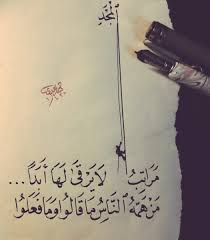 المَجْدُ
مَرَاتِبُ لَا يَرْقَى لَهَا أَبَدًا...
مَنْ هَمُّهُ النَّاسُ مَا قَالُوا وَمَا فَعَلُوا